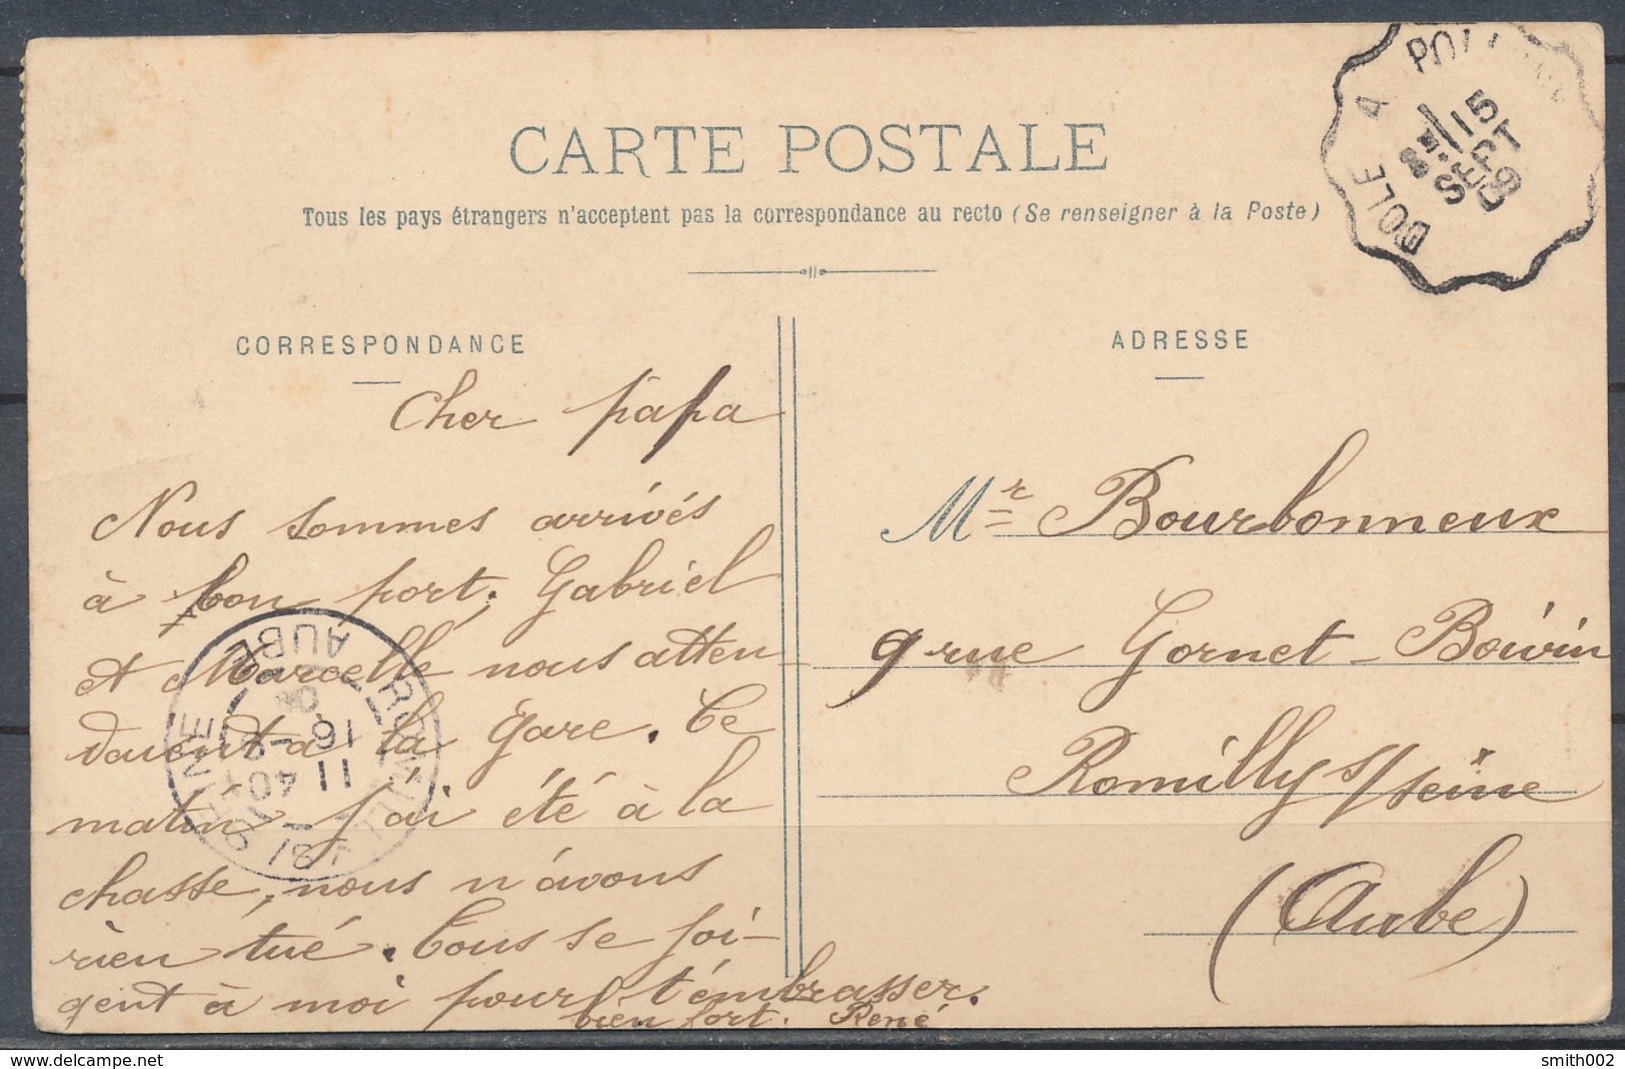 CARTE POSTALE
Tous les pays étrangers n'acceptent pas la correspondance au recto (Se renseigner à la Poste)
DOLE A
15
SEPT
09
CORRESPONDANCE
Cher papa
Nous sommes arrivés
à bon port. Gabriel
et Marcelle nous atten
daient à la gare. Ce
matin j'ai été à la
chasse, nous n'avons
rien tué. Tous se joi-
gent à moi pour t'embrasser
bien fort. René
ADRESSE
Mr Bourbonneux
9 rue Gornet-Boivin
Romilly s/seine
(Aube)
ROMILLY S/ SEINE
AUBE
11 40
16 - 9
smith002